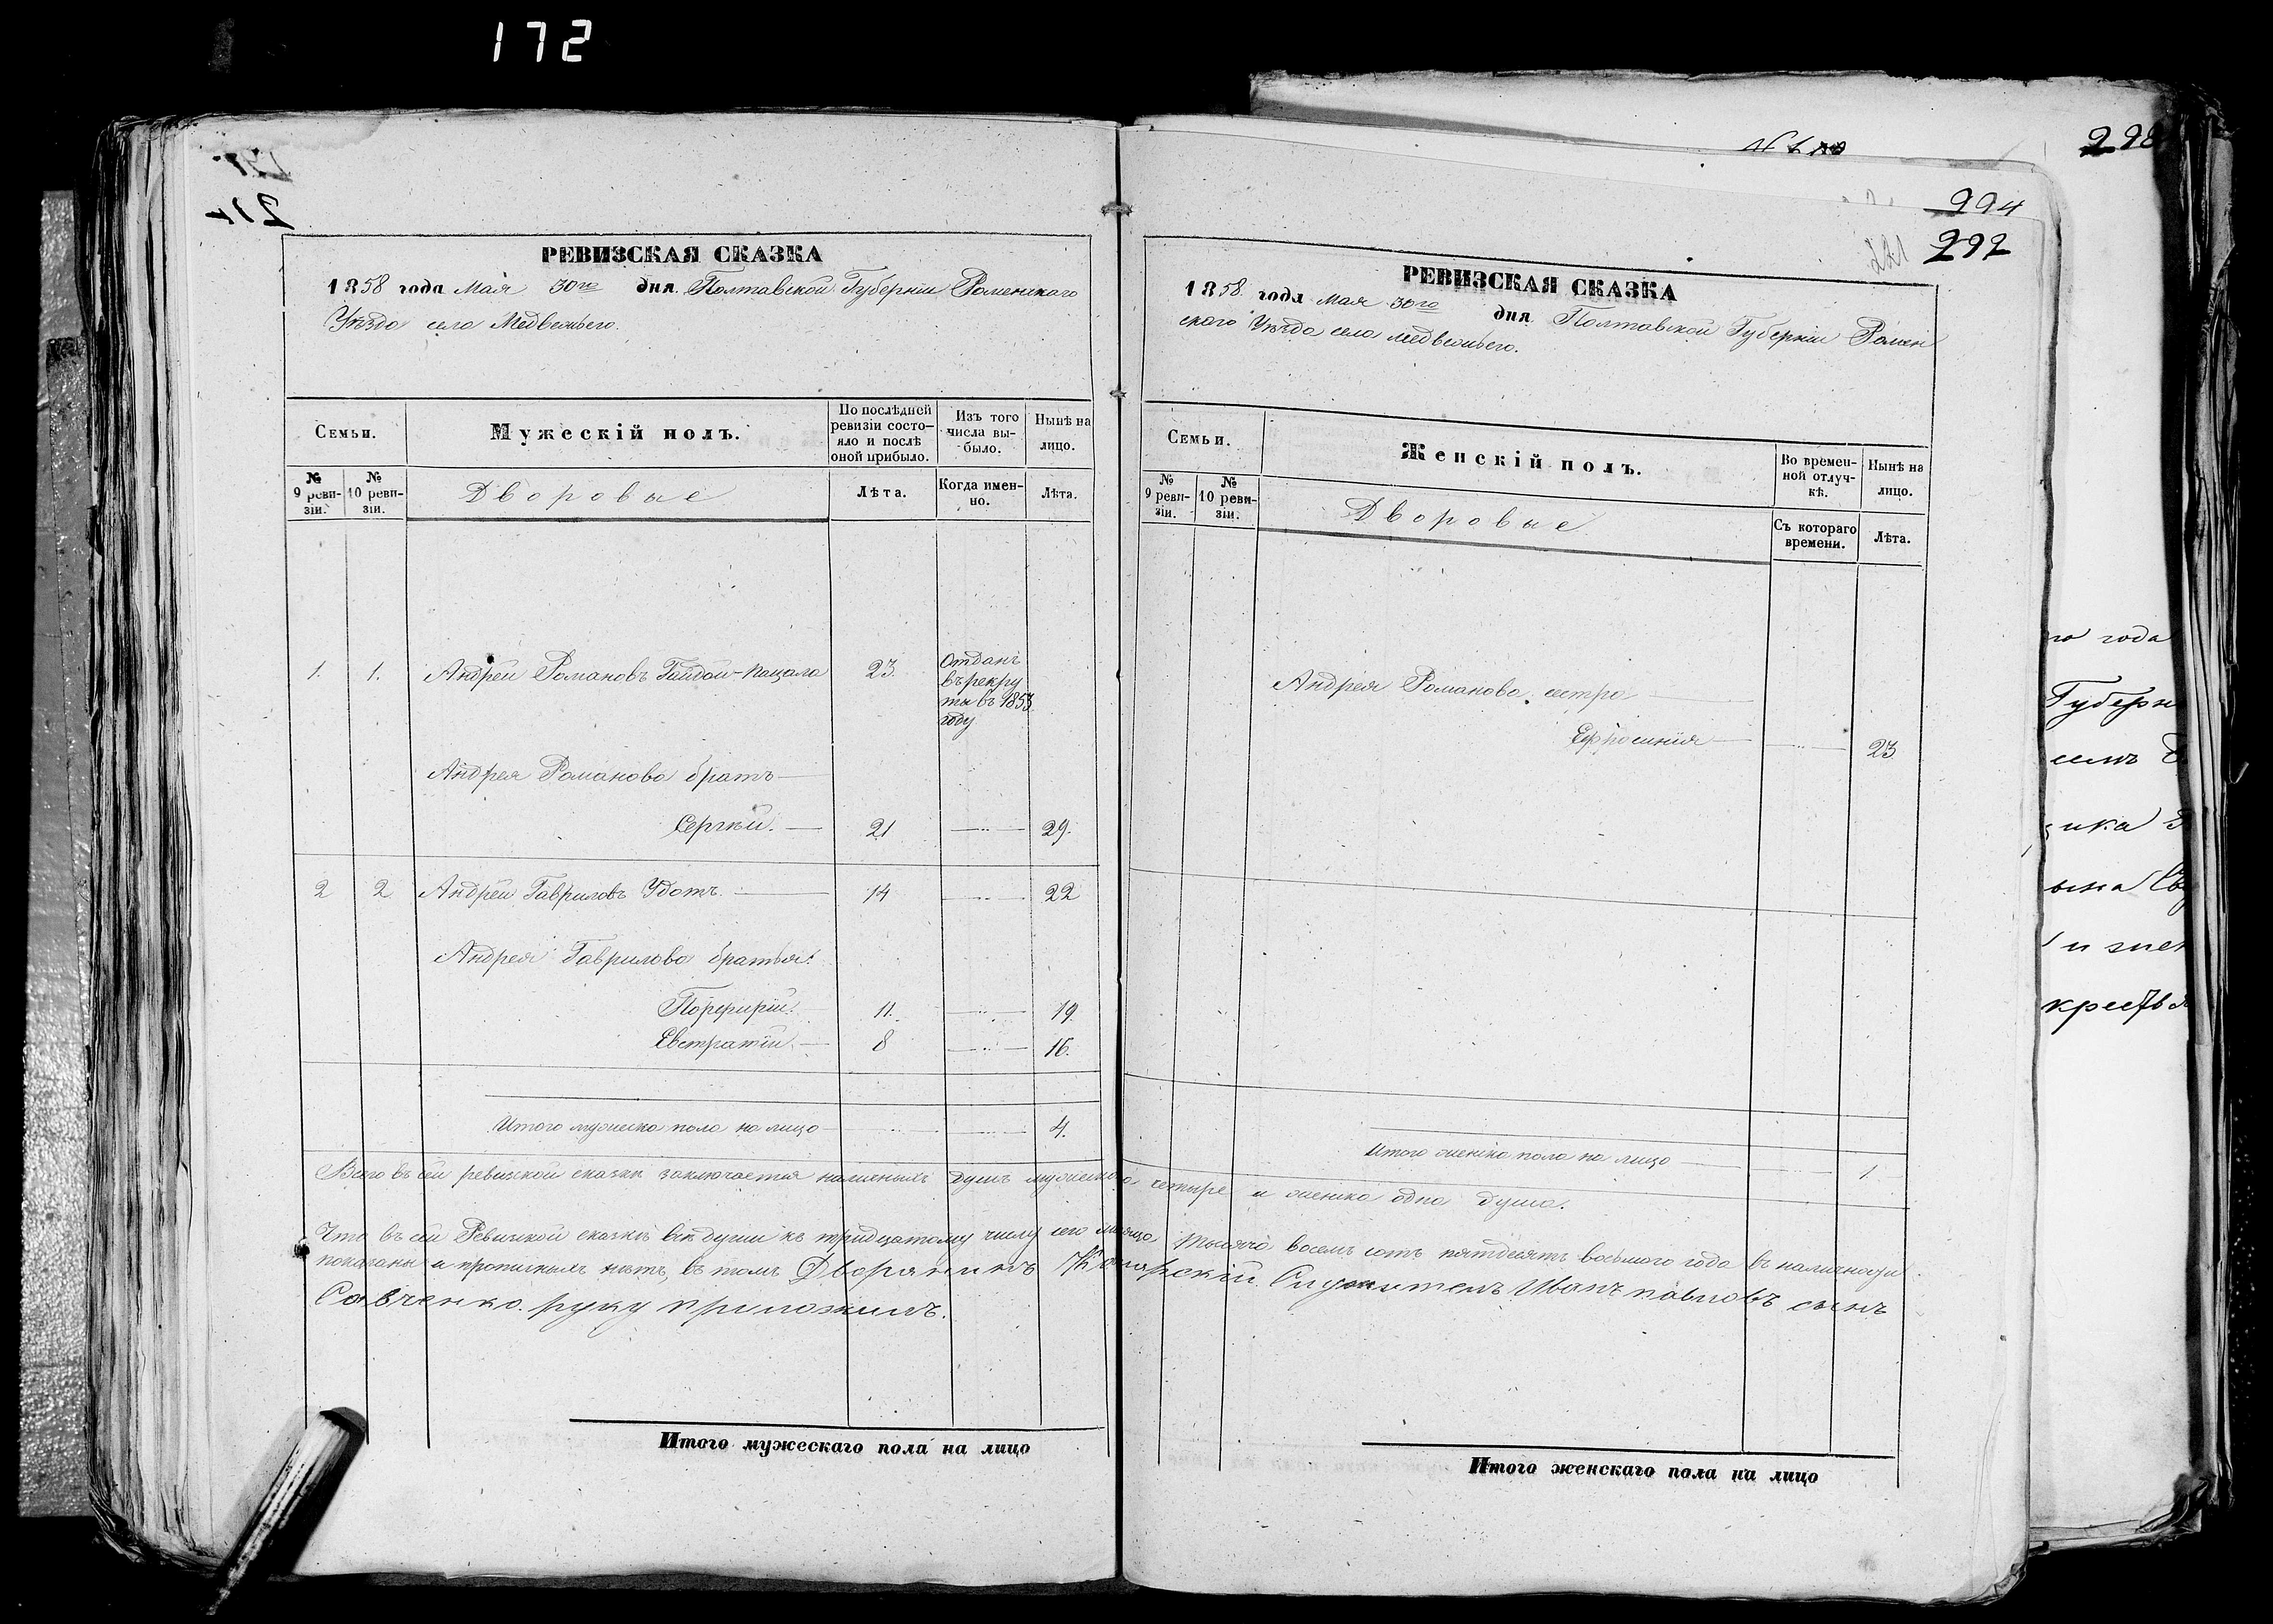 172
298
294
292
221
РЕВИЗСКАЯ СКАЗКА
1858 года Мая 30го дня Полтавской Губерніи Роменскаго
Уѣзда села Медвежьего.
Семьи.
Мужескій полъ.
По послѣдней ревизіи состояло и послѣ оной прибыло.
Изъ того числа выбыло.
Нынѣ на лицо.
№ 9 ревизіи.
№ 10 ревизіи.
Дворовые
Лѣта.
Когда именно.
Лѣта.
1. 1. Андрей Романовъ Гайдай-Кацала 23 Отданъ
въ рекру
ты въ 1853
году
Андрея Романова братъ
Сергѣй. 21 29.
2 2 Андрей Гавриловъ Удотъ. 14 22
Андрея Гаврилова братья:
Порфирій. 11. 19.
Евстратій. 8 16.
Итого мужеска пола на лицо 4.
РЕВИЗСКАЯ СКАЗКА
1858 года Мая 30го дня Полтавской Губерніи Ромен
скаго Уѣзда села Медвежьего.
Семьи.
Женскій полъ.
Во временной отлучкѣ.
Нынѣ на лицо.
№ 9 ревизіи.
№ 10 ревизіи.
Дворовые
Съ котораго времени.
Лѣта.
Андрея Романова сестра
Ефросинія 23
Итого женска пола на лицо 1.
Всего въ сей ревизской сказкѣ заключается наличныхъ душъ мужеска четыре и женска одна душа.
Что въ сей Ревизской сказкѣ всѣ души къ тридцатому числу сего мѣсяца тысяча восемь сотъ пятдесятъ восьмого года въ наличности
показаны и прописныхъ нѣтъ, въ томъ Дворянинъ Служитель Иванъ Павловъ сынъ
Савченко руку приложилъ.
Итого мужескаго пола на лицо
Итого женскаго пола на лицо
го года
Губерн
ика